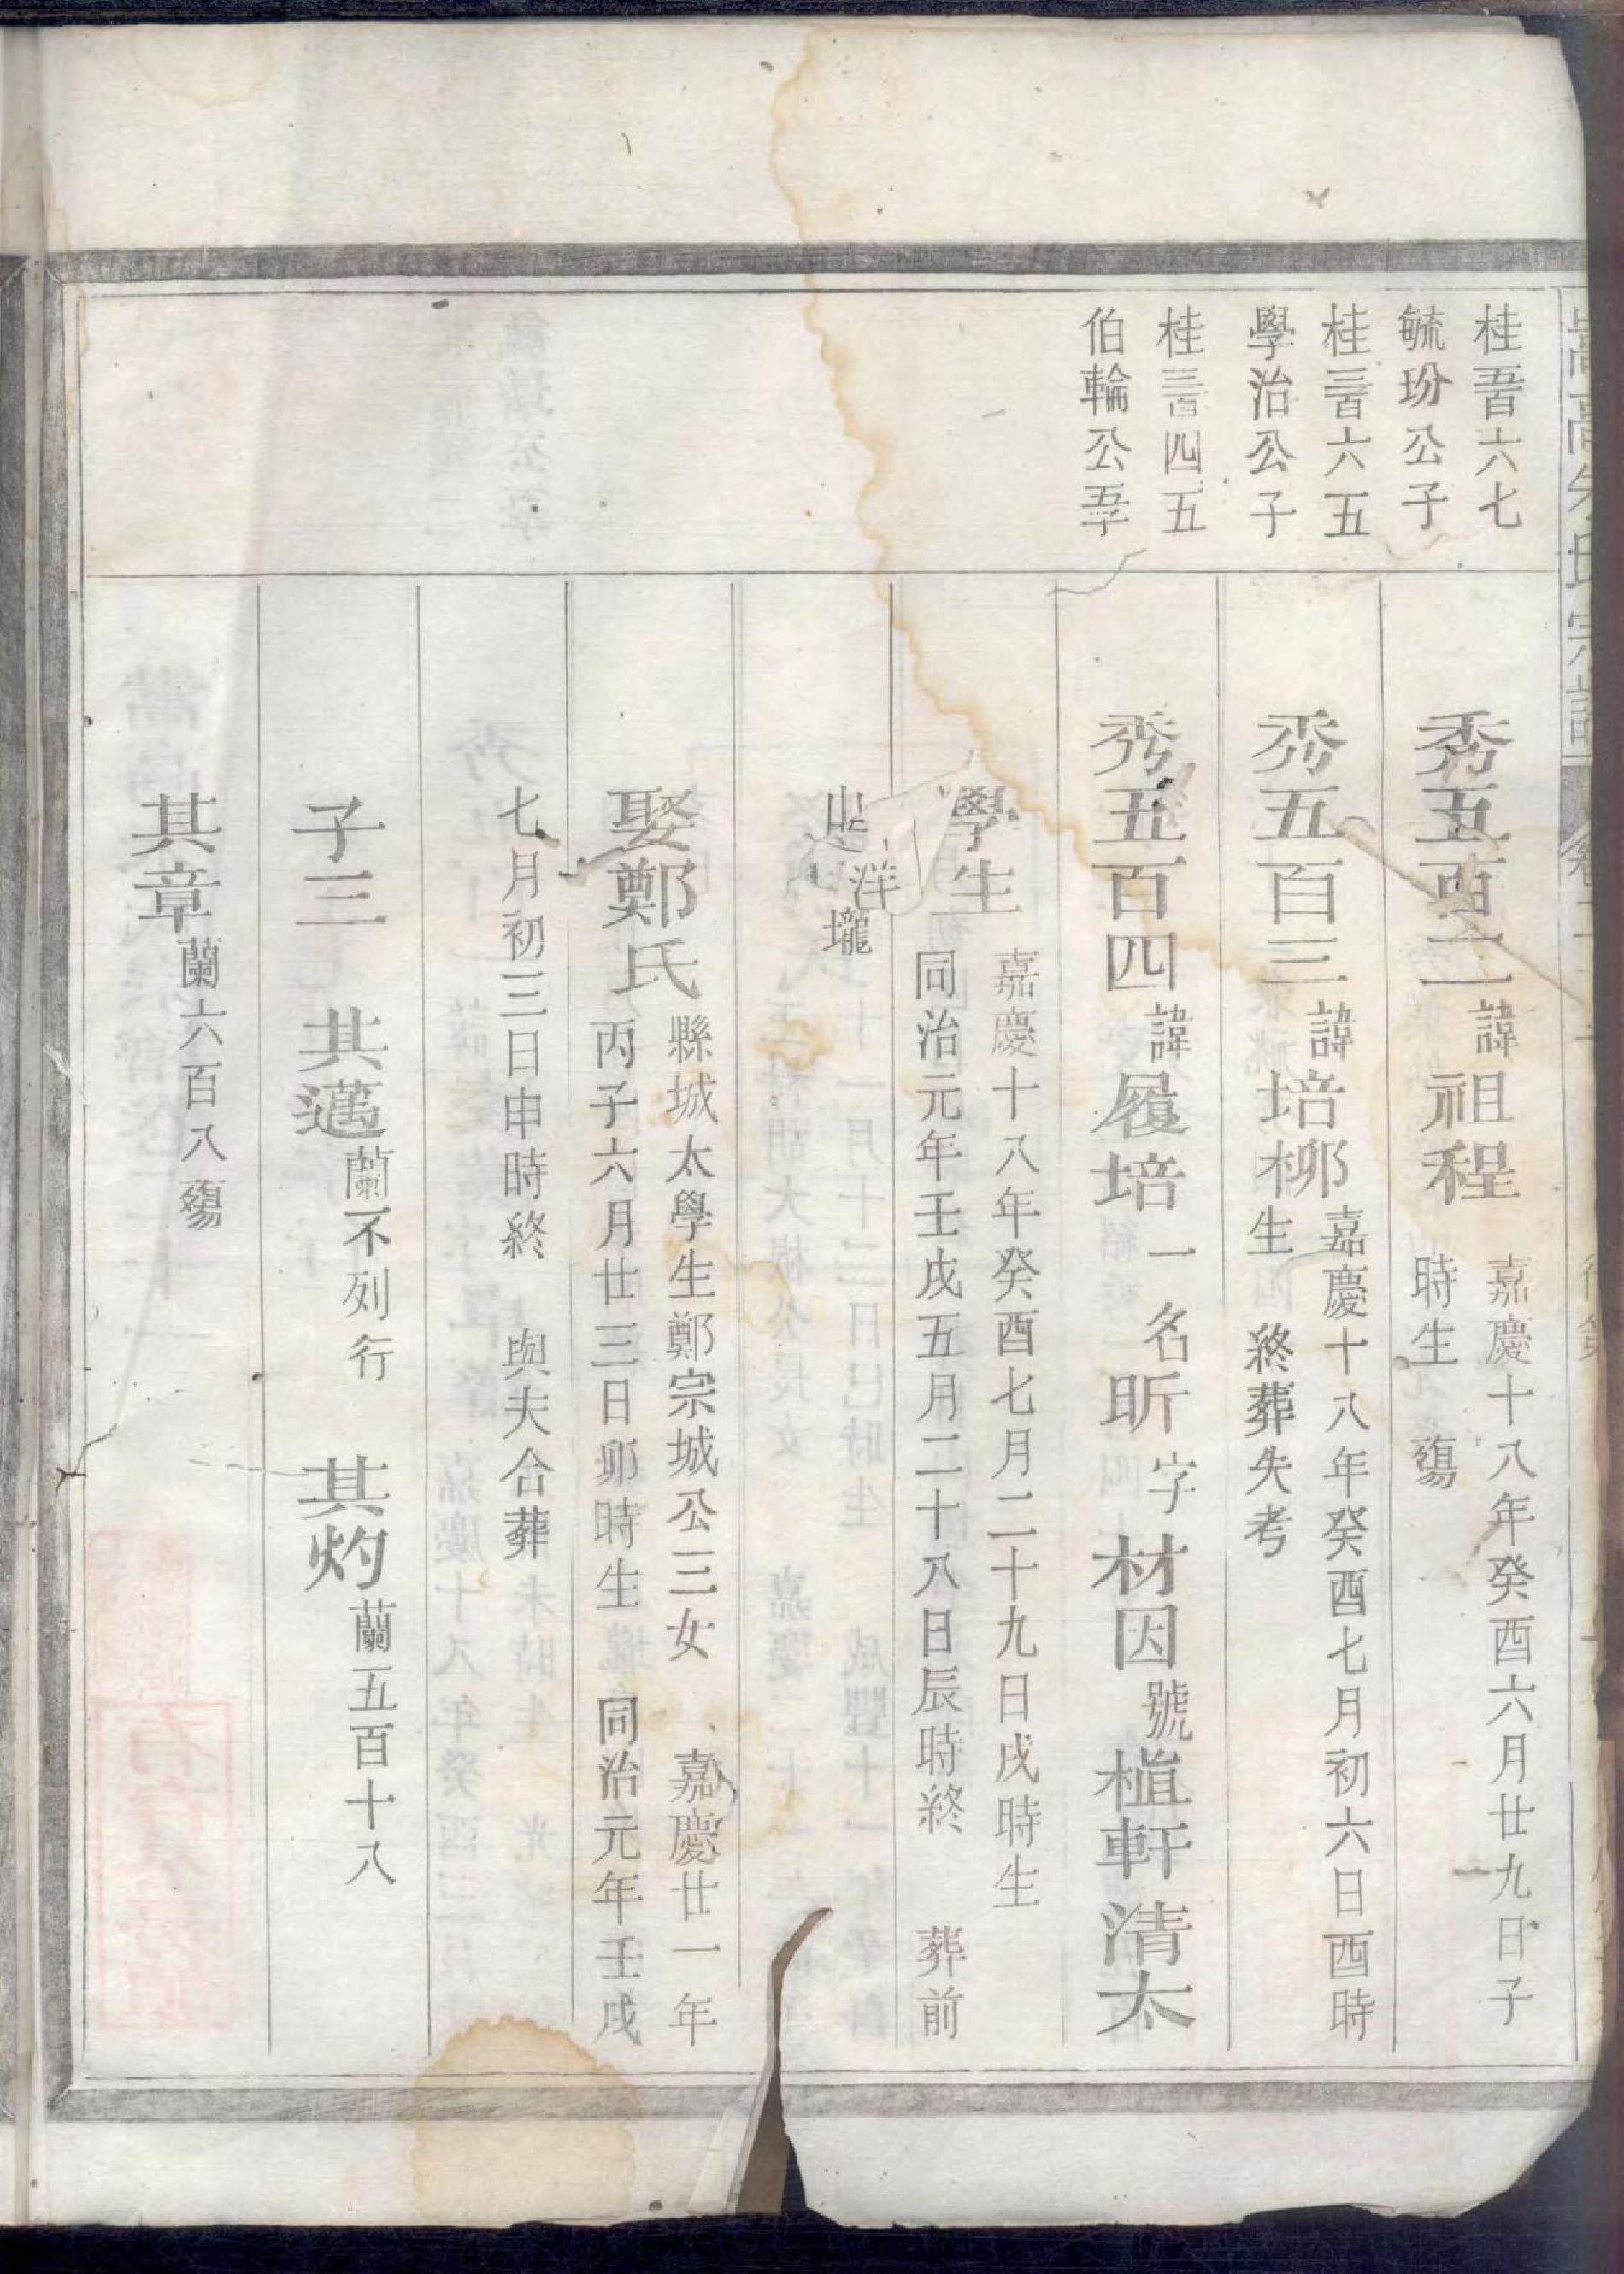 桂五百六七
毓玢公子
桂三百六五
學治公子
桂三百四五
伯輪公五子
秀五百二 諱 祖程 嘉慶十八年癸酉六月廿九日子
時生 殤
秀五百三 諱 培柳 嘉慶十八年癸酉七月初六日酉時
生 終葬失考
秀五百四 諱 履培 一名 昕 字 材因 號 植軒 清太
學生 嘉慶十八年癸酉七月二十九日戌時生
同治元年壬戌五月二十八日辰時終 葬前
山 洋壠
娶鄭氏 縣城太學生鄭宗城公三女 嘉慶廿一年
丙子六月廿三日卯時生 同治元年壬戌
七月初三日申時終 與夫合葬
子三 其邁 蘭不列行 其灼 蘭五百十八
其章 蘭六百八殤